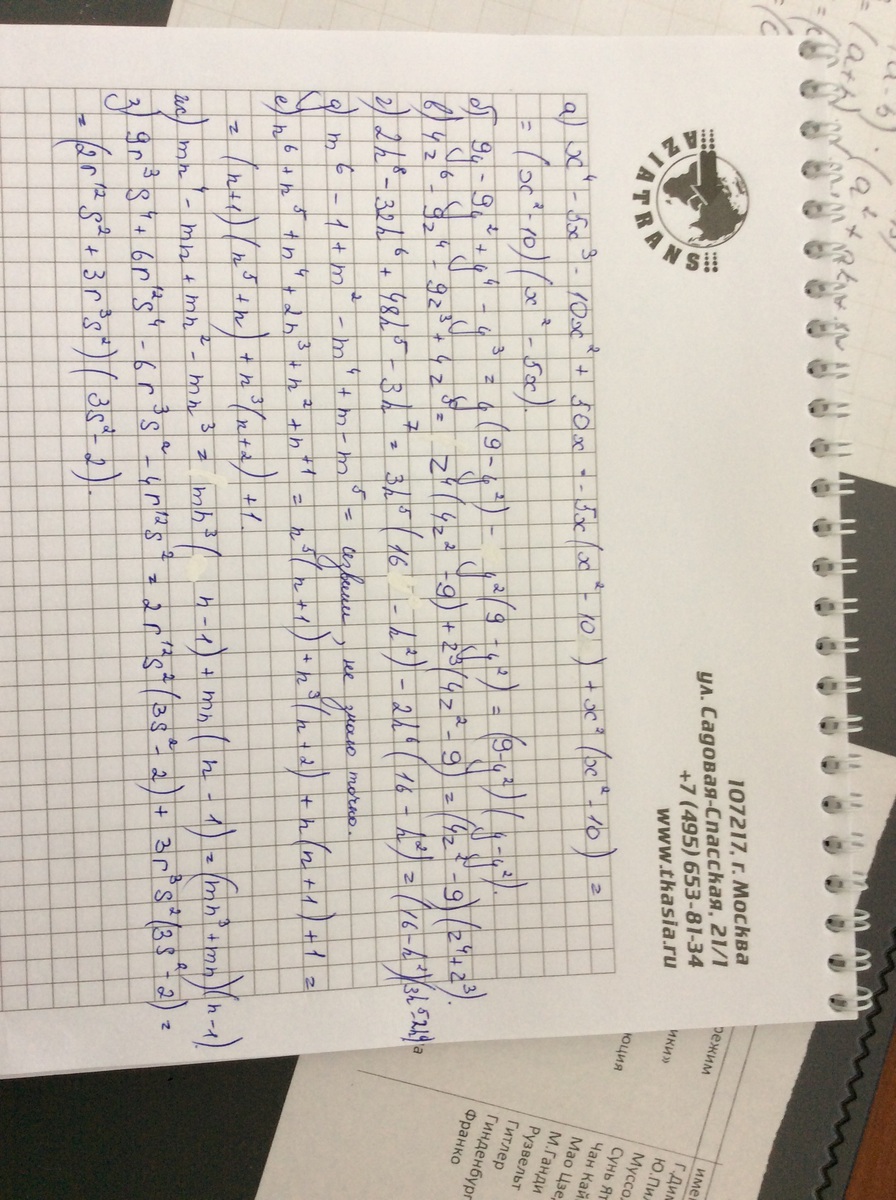 AZIATRANS
107217, г. Москва
ул. Садовая-Спасская, 21/1
+7 (495) 653-81-34
www.tkasia.ru
а) x⁴ - 5x³ - 10x² + 50x = -5x(x² - 10) + x²(x² - 10) =
= (x² - 10)(x² - 5x).
б) 9y - 9y² + y⁴ - y³ = y(9 - y²) - y²(9 - y²) = (9 - y²)(y - y²).
в) 4z⁶ - 9z⁴ - 9z³ + 4z⁵ = z⁴(4z² - 9) + z³(4z² - 9) = (4z² - 9)(z⁴ + z³).
г) 2h⁸ - 32h⁶ + 48h⁵ - 3h⁷ = 3h⁵(16 - h²) - 2h⁶(16 - h²) = (16 - h²)(3h⁵ - 2h⁶)
д) m⁶ - 1 + m² - m⁴ + m - m⁵ = извини, не знаю точно.
е) n⁶ + n⁵ + n⁴ + 2n³ + n² + n + 1 = n⁵(n + 1) + n³(n + 2) + n(n + 1) + 1 =
= (n + 1)(n⁵ + n) + n³(n + 2) + 1.
ж) mn⁴ - mn + mn² - mn³ = mn³(n - 1) + mn(n - 1) = (mn³ + mn)(n - 1).
з) 9r³s⁴ + 6r¹²s⁴ - 6r³s² - 4r¹²s² = 2r¹²s²(3s² - 2) + 3r³s²(3s² - 2) =
= (2r¹²s² + 3r³s²)(3s² - 2).
режим
ики»
юция
име
Г.Ди
Ю.Пи
Муссо
Сунь Я
Чан Кай
Мао Цзе
М.Ганди
Рузвельт
Гитлер
Гинденбур
Франко